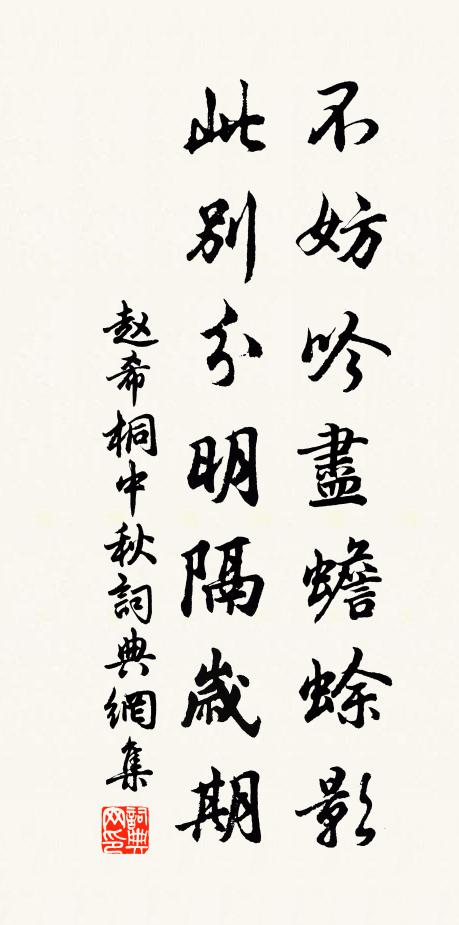 不妨吟盡蟾蜍影
此别分明隔歲期
赵希桐中秋詞典網集
詞典网印